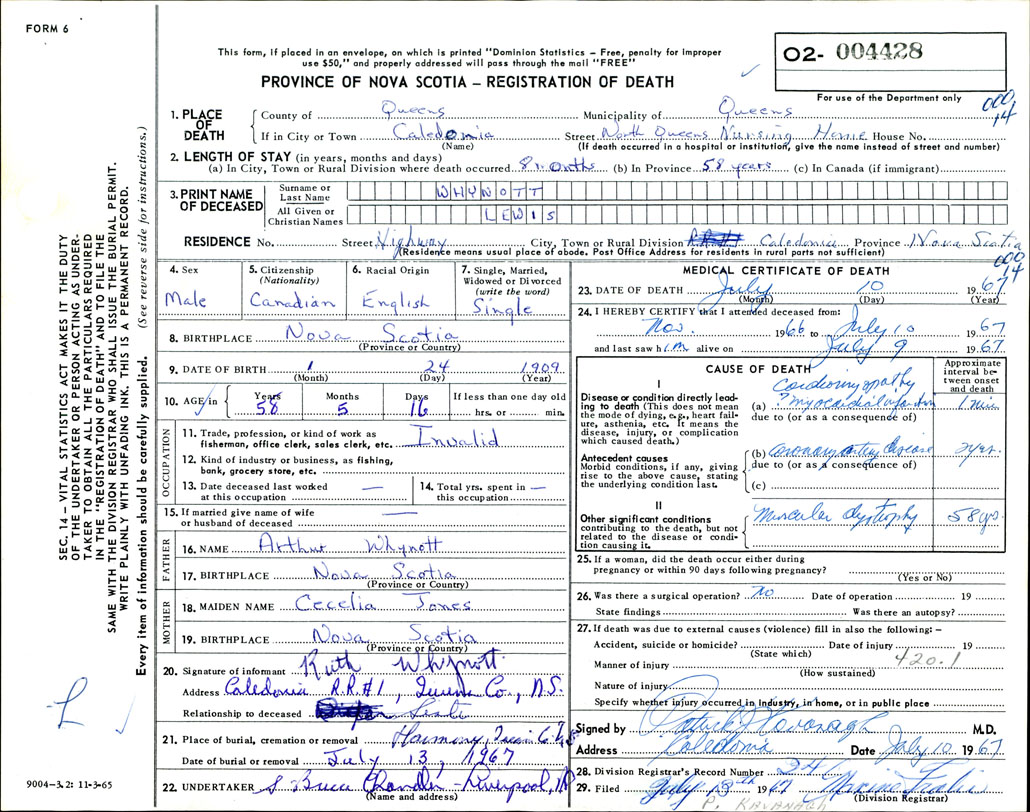 FORM 6
This form, if placed in an envelope, on which is printed "Dominion Statistics – Free, penalty for improper
use $50," and properly addressed will pass through the mail "FREE"
PROVINCE OF NOVA SCOTIA – REGISTRATION OF DEATH
02- 004428
For use of the Department only
000
14
1. PLACE OF DEATH
County of Queens Municipality of Queens
If in City or Town Caledonia Street North Queens Nursing Home House No.
(Name) (If death occurred in a hospital or institution, give the name instead of street and number)
2. LENGTH OF STAY (in years, months and days)
(a) In City, Town or Rural Division where death occurred 8 months (b) In Province 58 years (c) In Canada (if immigrant)
3. PRINT NAME OF DECEASED
Surname or Last Name WHYNOTT
All Given or Christian Names LEWIS
RESIDENCE No. Street Highway City, Town or Rural Division Caledonia Province Nova Scotia
(Residence means usual place of abode. Post Office Address for residents in rural parts not sufficient)
000
14
4. Sex Male
5. Citizenship (Nationality) Canadian
6. Racial Origin English
7. Single, Married, Widowed or Divorced (write the word) Single
8. BIRTHPLACE Nova Scotia
(Province or Country)
9. DATE OF BIRTH 1 24 1909
(Month) (Day) (Year)
10. AGE in Years 58 Months 5 Days 16 If less than one day old
hrs. or min.
OCCUPATION
11. Trade, profession, or kind of work as
fisherman, office clerk, sales clerk, etc. Invalid
12. Kind of industry or business, as fishing,
bank, grocery store, etc.
13. Date deceased last worked at this occupation —
14. Total yrs. spent in this occupation —
15. If married give name of wife
or husband of deceased —
FATHER
16. NAME Arthur Whynott
17. BIRTHPLACE Nova Scotia
(Province or Country)
MOTHER
18. MAIDEN NAME Cecelia Jones
19. BIRTHPLACE Nova Scotia
(Province or Country)
20. Signature of informant Ruth Whynott
Address Caledonia R.R.#1, Queens Co., N.S.
Relationship to deceased Sister
21. Place of burial, cremation or removal Harmony, Queens Co.
Date of burial or removal July 13, 1967
22. UNDERTAKER S Bruce Chandler - Liverpool, NS
(Name and address)
MEDICAL CERTIFICATE OF DEATH
23. DATE OF DEATH July 10 1967
(Month) (Day) (Year)
24. I HEREBY CERTIFY that I attended deceased from:
Nov. 1966 to July 10 1967
and last saw him alive on July 9 1967
CAUSE OF DEATH
Approximate interval between onset and death
I
Disease or condition directly leading to death (This does not mean
the mode of dying, e.g., heart failure, asthenia, etc. It means the
disease, injury, or complication
which caused death.)
Cardiomyopathy
(a) ? myocardial infarction 1 min
due to (or as a consequence of)
Antecedent causes
Morbid conditions, if any, giving
rise to the above cause, stating
the underlying condition last.
(b) coronary artery disease 2 yrs.
due to (or as a consequence of)
(c)
II
Other significant conditions
contributing to the death, but not
related to the disease or condition causing it.
Muscular dystrophy 58 yrs
25. If a woman, did the death occur either during
pregnancy or within 90 days following pregnancy?
(Yes or No)
26. Was there a surgical operation? No Date of operation 19
State findings Was there an autopsy?
27. If death was due to external causes (violence) fill in also the following: –
Accident, suicide or homicide? Date of injury 19
(State which)
420.1
Manner of injury
(How sustained)
Nature of injury
Specify whether injury occurred in industry, in home, or in public place
Signed by Patrick J Kavanagh M.D.
Address Caledonia Date July 10 1967
28. Division Registrar's Record Number 24
29. Filed July 13th 1967
(Division Registrar)
P. KAVANAGH
SEC. 14 – VITAL STATISTICS ACT MAKES IT THE DUTY
OF THE UNDERTAKER OR PERSON ACTING AS UNDERTAKER TO OBTAIN ALL THE PARTICULARS REQUIRED
IN THE "REGISTRATION OF DEATH" AND TO FILE THE
SAME WITH THE DIVISION REGISTRAR WHO SHALL ISSUE THE BURIAL PERMIT.
WRITE PLAINLY WITH UNFADING INK. THIS IS A PERMANENT RECORD.
Every item of information should be carefully supplied. (See reverse side for instructions.)
9004-3.2: 11-3-65